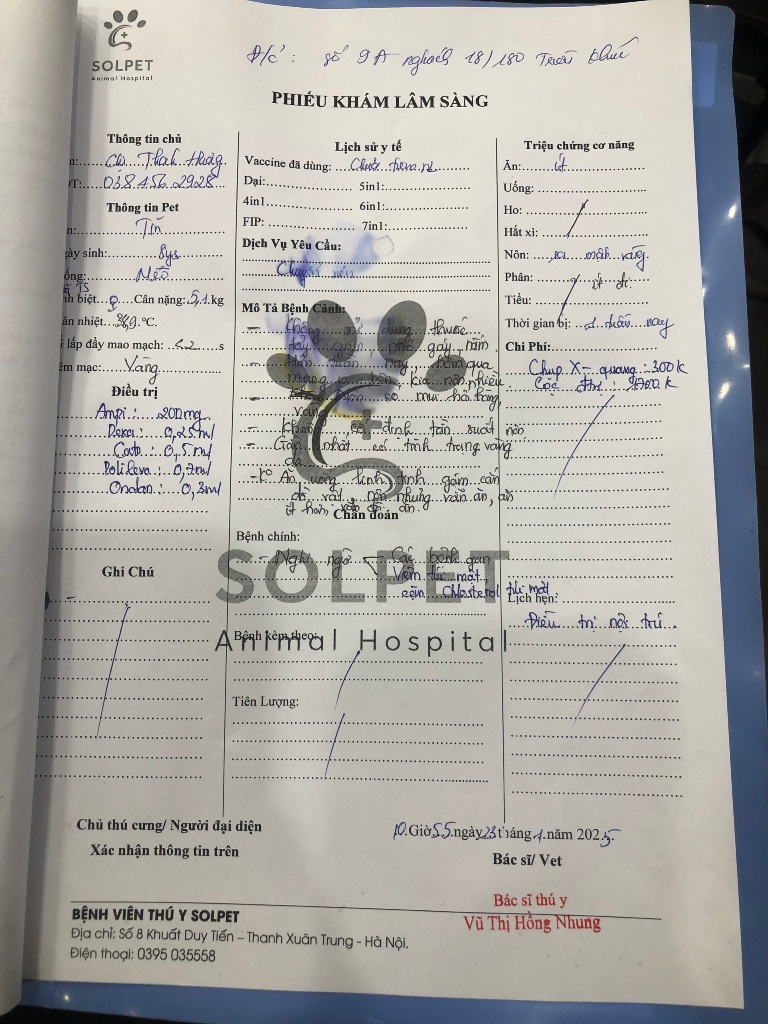 SOLPET
Animal Hospital
Đ/c: số 9A nghách 18/180 Triều Khúc
PHIẾU KHÁM LÂM SÀNG
Thông tin chủ
n: Chị Thanh Hương
T: 038.456.2928
Thông tin Pet
n: Tín
gày sinh: 8ys
ống: Mèo
TS
h biệt: ♀ Cân nặng: 5,1 kg
ân nhiệt: °C.
lấp đầy mao mạch: <2 s
êm mạc: Vàng
Điều trị
Ampi: 200mg
Dexa: 0,25ml
Cato: 0,5ml
0,7ml
0,3ml
Ghi Chú
Lịch sử y tế
Vaccine đã dùng: Chưa tiêm
Dại: 5in1:
4in1 6in1:
FIP: 7in1:
Dịch Vụ Yêu Cầu:
Mô Tả Bệnh Cảnh:
- Không sử dụng thuốc
tẩy nhỏ gáy năm
- nôn tuần nay, hôm qua
nôn nhiều
- có mùi
vàng
- Không cố định tần suất nôn
- Gần nhất có tình trạng vàng
da
- Ăn uống linh tinh gặm cắn
đồ vật, nôn nhưng vẫn ăn, ăn
ít hơn, vẫn đòi ăn.
Chẩn đoán
Bệnh chính:
- Nghi ngờ Các bệnh gan
Viêm túi mật,
cặn Cholesterol túi mật
SOLPET
Animal Hospital
Bệnh kèm theo:
Tiên Lượng:
Triệu chứng cơ năng
Ăn: ít
Uống:
Ho:
Hắt xì:
Nôn: ra mật vàng
Phân: ít đi
Tiểu:
Thời gian bị: 1 tuần nay
Chi Phí:
Chụp X-quang: 300k
Lịch hẹn:
Điều trị nội trú
Chủ thú cưng/ Người đại diện
Xác nhận thông tin trên
10 Giờ 55 ngày 23 tháng 1 năm 2025
Bác sĩ/ Vet
Bác sĩ thú y
Vũ Thị Hồng Nhung
BỆNH VIÊN THÚ Y SOLPET
Địa chỉ: Số 8 Khuất Duy Tiến – Thanh Xuân Trung - Hà Nội.
Điện thoại: 0395 035558